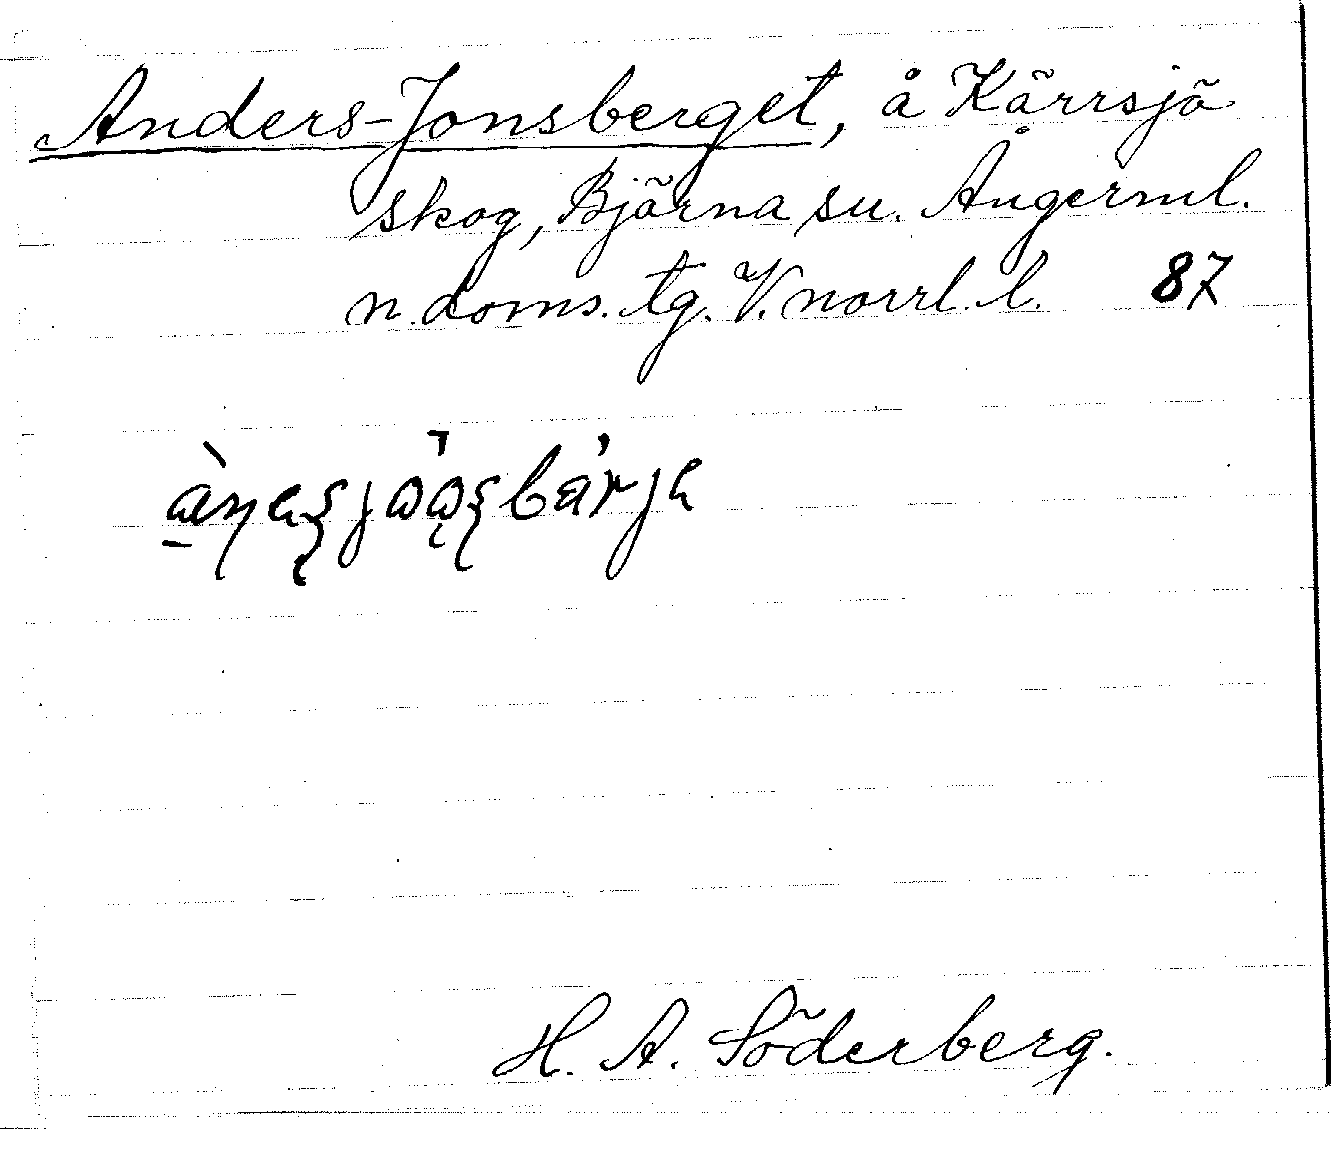 Anders-Jonsberget, å Kärrsjö
skog, Björna sn. Ångerml.
n. doms. tg. V. norrl. l. 87
H. A. Söderberg.